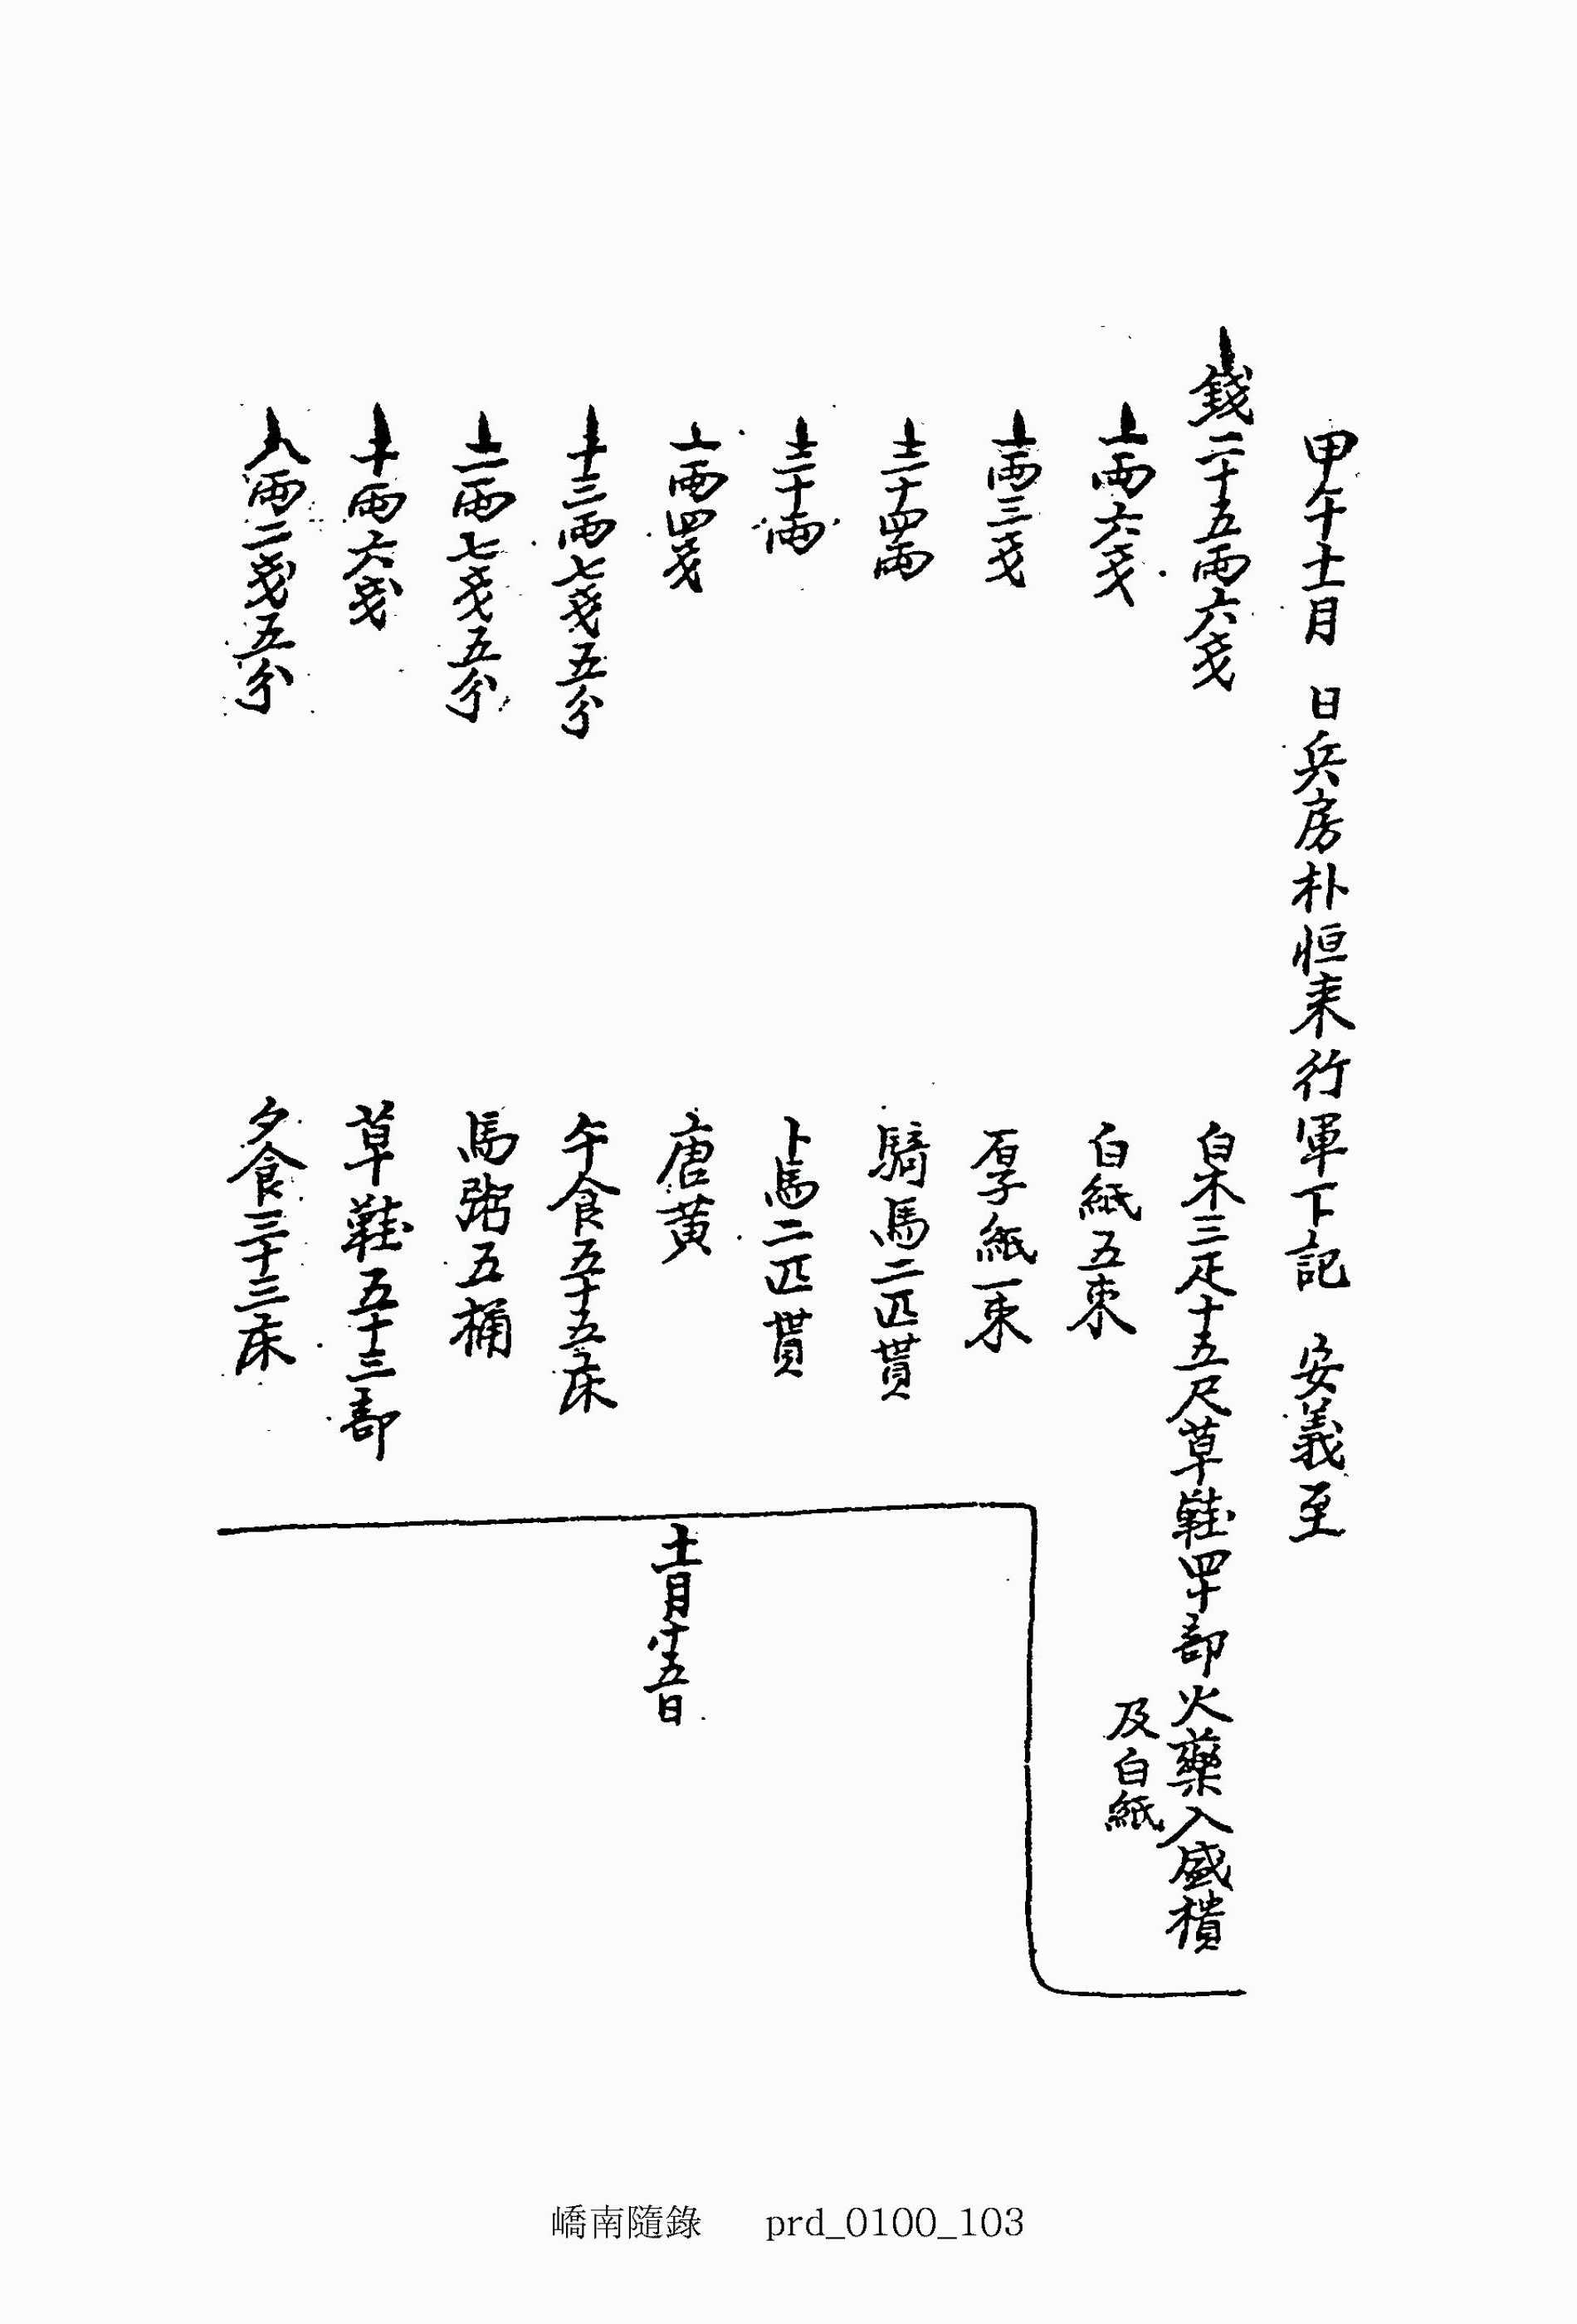 甲午十一月 日兵房朴恒來行軍下記 安義至
錢二十五兩六戔 白木三疋十五尺草鞋四十部火藥入盛樻
及白紙
二兩六戔 白紙五束
二兩三戔 厚紙一束
三十四兩 騎馬二匹貰
三十兩 卜馬二匹貰
一兩四戔 唐黃
十三兩七戔五分 午食五十五床
二兩七戔五分 馬粥五桶
十兩六戔 草鞋五十三部
八兩二戔五分 夕食三十三床
十一月十五日
嶠南隨錄 prd_0100_103